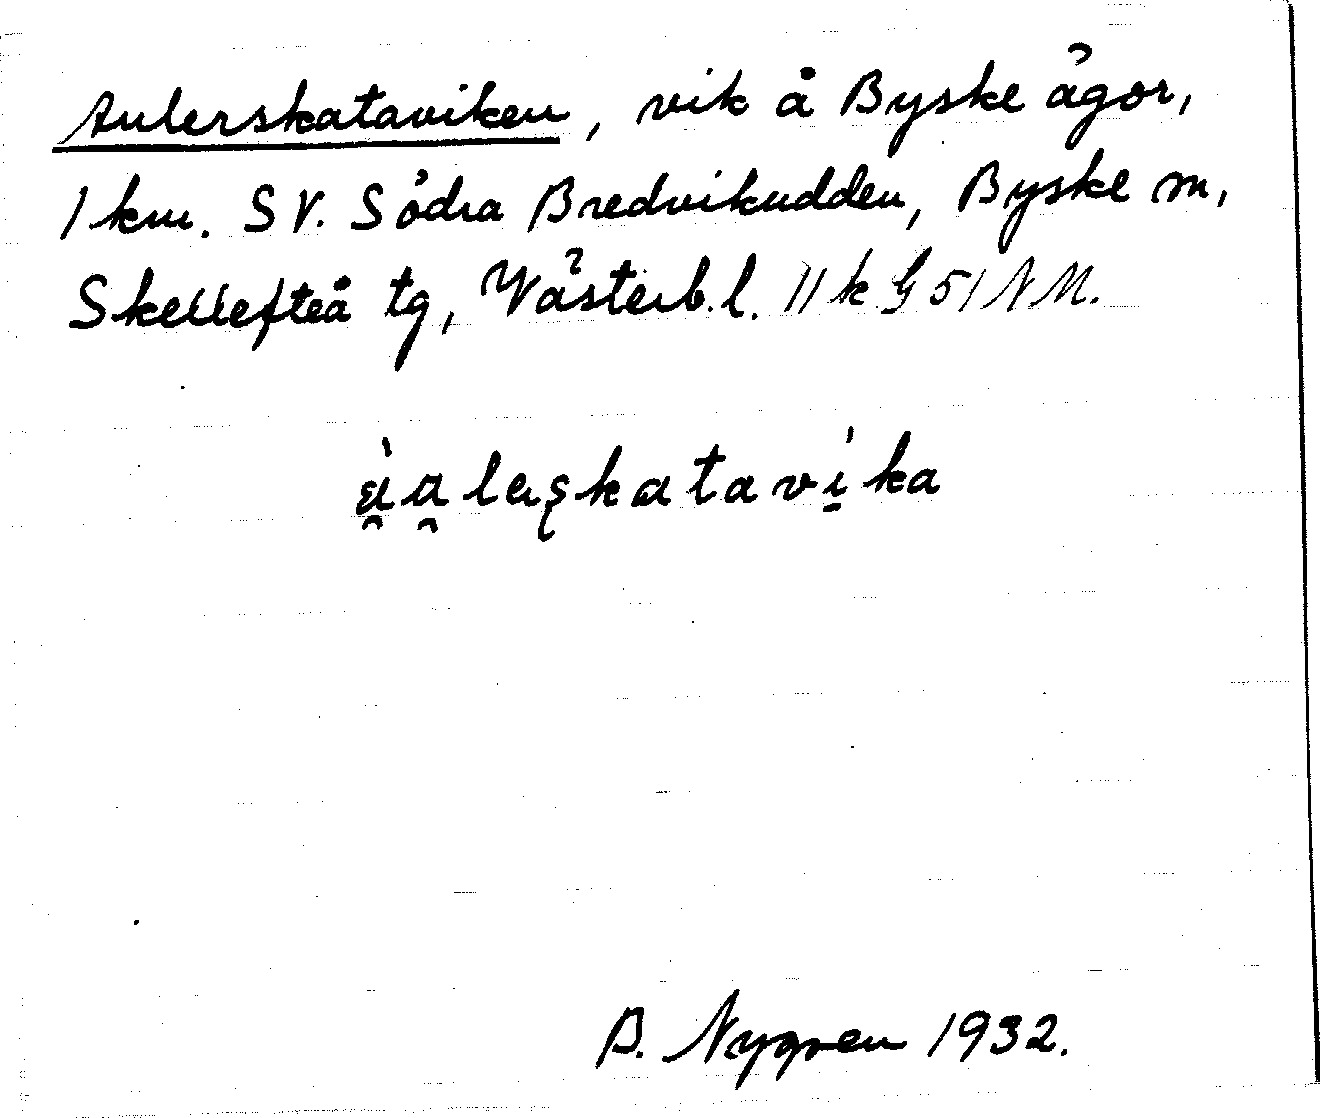 Aulerskataviken, vik å Byske ägor,
1 km. SV. Södra Bredvikudden, Byske sn,
Skellefteå tg, Västerb.l. 11 k G 51 NM.
à̯a̯leʂkataví̠ka
B. Nygren 1932.